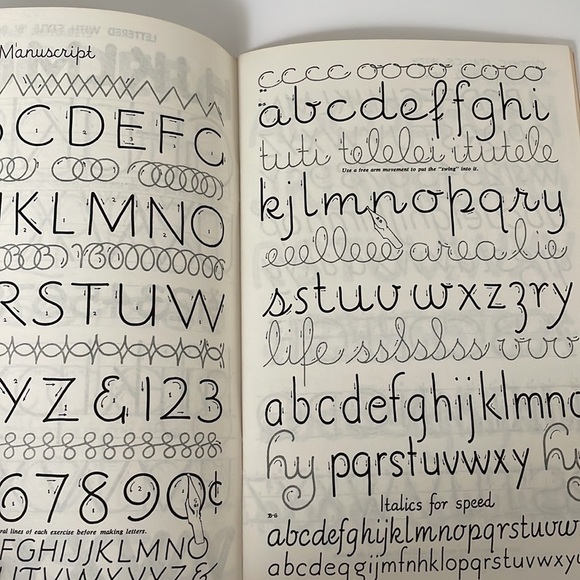 Manuscript
CDEFG
JKLMNO
RSTUW
YZ&123
67890¢
lines of each exercise before making letters.
FGHIJJKLMNO
cccc oooo coco
abcdeffghi
tuti tolelei itutele
Use a free arm movement to put the "swing" into it.
kjlmnopqry
area lie
sstuvwxz3ry
life ssssss vvv
abcdefghijklmno
hy pqrstuvwxy hy
Italics for speed
abcdefghijklmnopqrstuvw